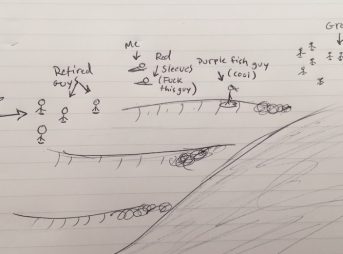 Me
Retired
guy
Red
Sleeves
(Fuck
this guy)
Purple fish guy
(cool)
Gr